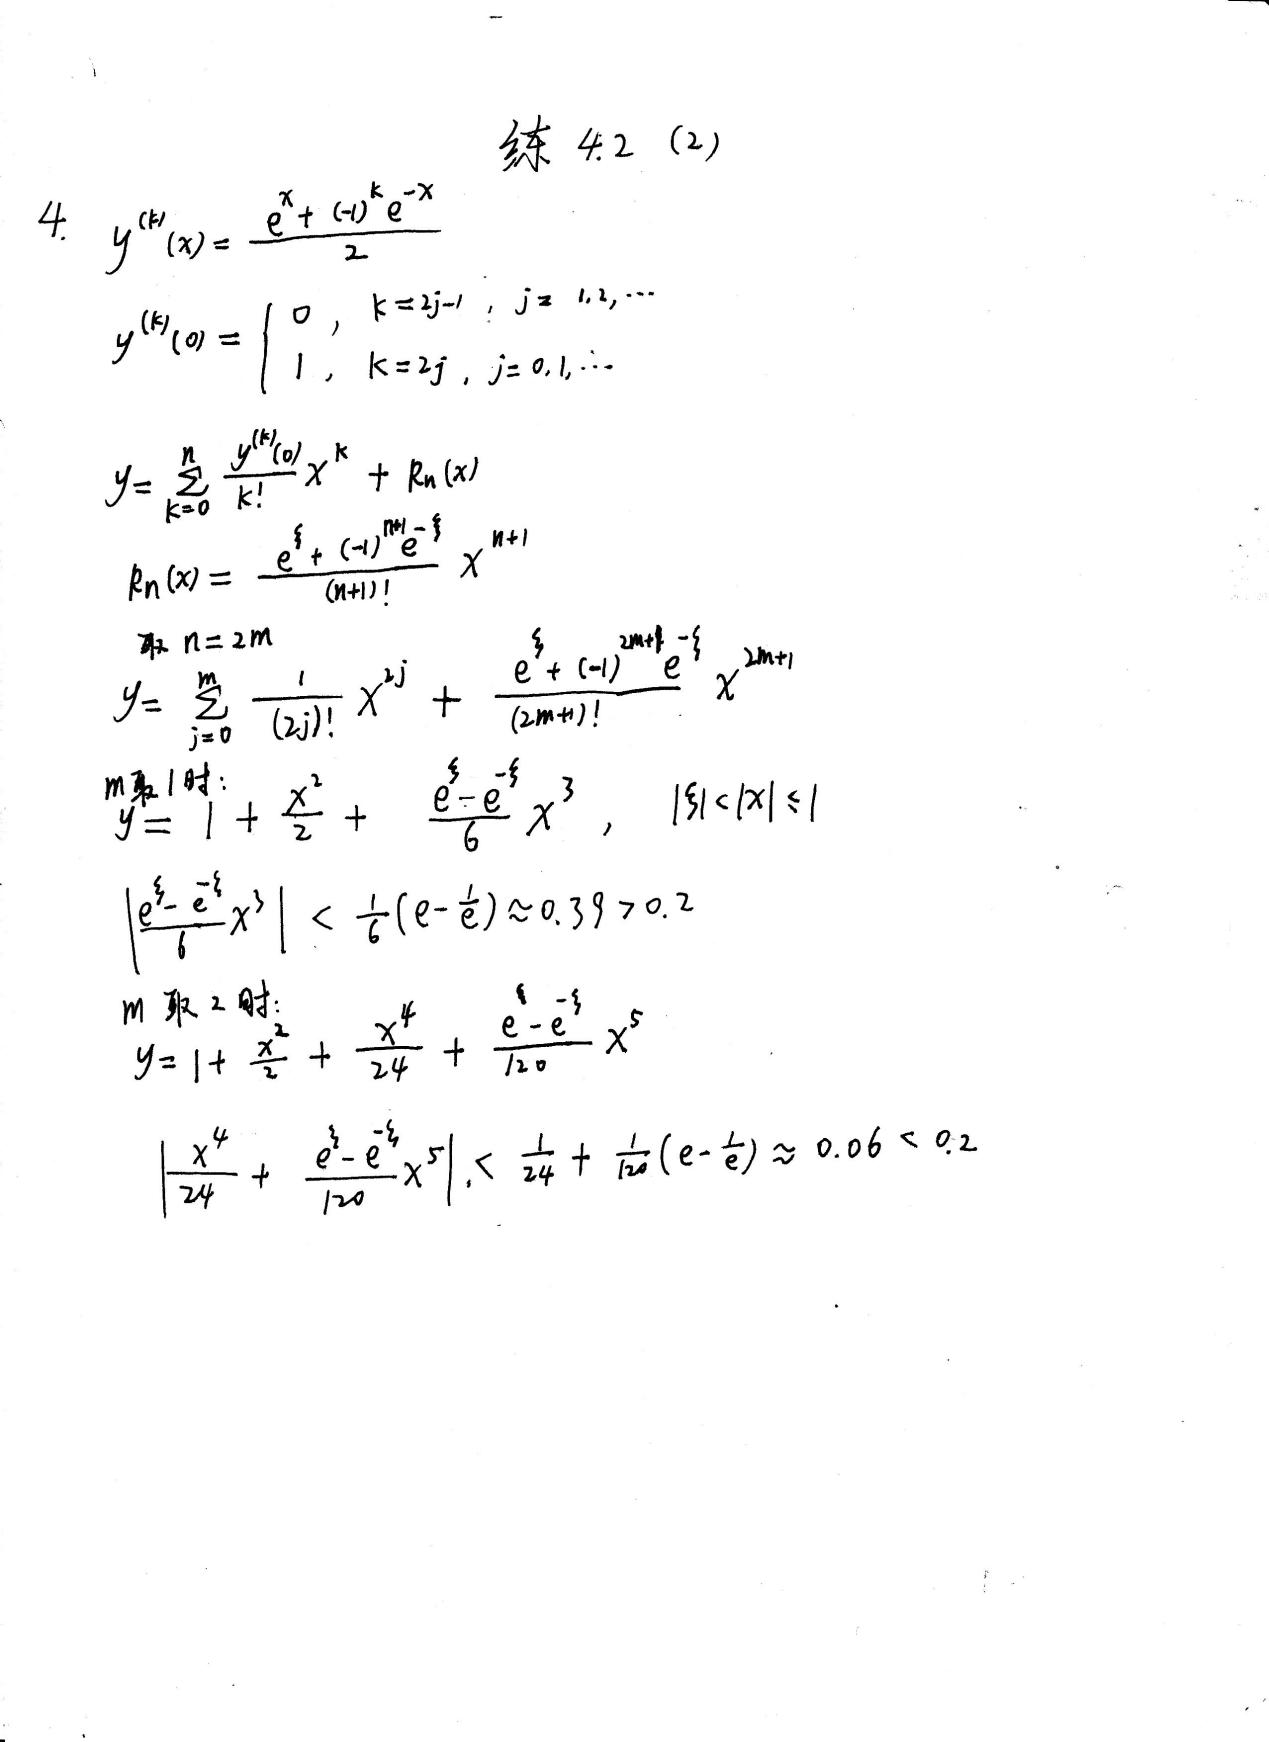 练 4.2 (2)
4. y^{(k)}(x) = \frac{e^x + (-1)^k e^{-x}}{2}
y^{(k)}(0) = { 0, k=2j-1, j=1,2,…
1, k=2j, j=0,1,…
y = \sum_{k=0}^{n} \frac{y^{(k)}(0)}{k!} x^k + R_n(x)
R_n(x) = \frac{e^ξ + (-1)^{n+1} e^{-ξ}}{(n+1)!} x^{n+1}
取 n=2m
y = \sum_{j=0}^{m} \frac{1}{(2j)!} x^{2j} + \frac{e^ξ + (-1)^{2m+1} e^{-ξ}}{(2m+1)!} x^{2m+1}
m取1时:
y = 1 + \frac{x^2}{2} + \frac{e^ξ - e^{-ξ}}{6} x^3, |ξ|<|x|≤1
|\frac{e^ξ - e^{-ξ}}{6} x^3| < \frac{1}{6}(e - \frac{1}{e}) ≈ 0.39 > 0.2
m 取 2 时:
y = 1 + \frac{x^2}{2} + \frac{x^4}{24} + \frac{e^ξ - e^{-ξ}}{120} x^5
|\frac{x^4}{24} + \frac{e^ξ - e^{-ξ}}{120} x^5| < \frac{1}{24} + \frac{1}{120}(e - \frac{1}{e}) ≈ 0.06 < 0.2